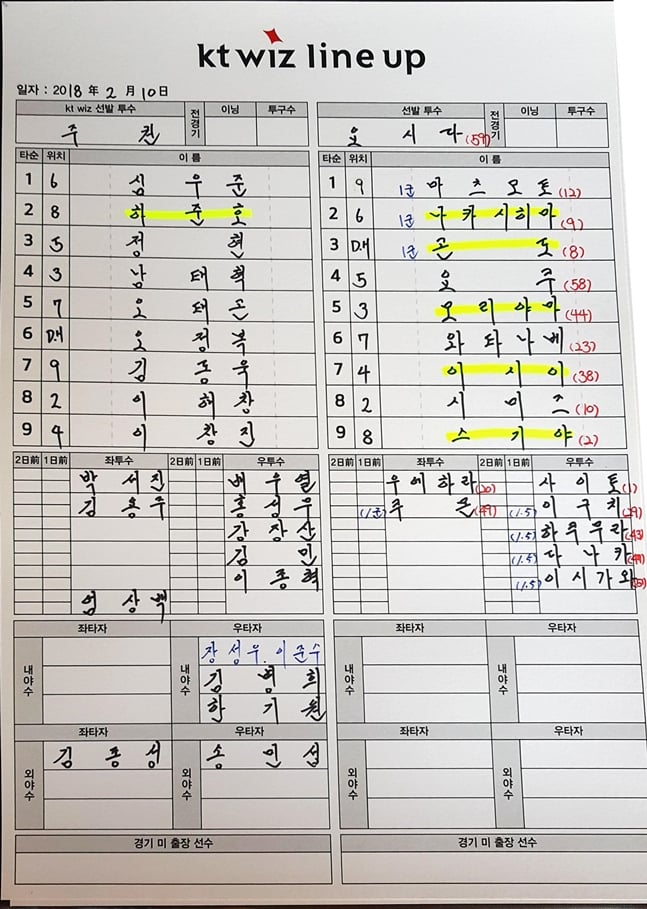 kt wiz line up
일자 : 2018 年 2 月 10日
kt wiz 선발 투수 전경기 이닝 투구수
주 권
타순 위치 이 름
1 6 심 우 준
2 8 하 준 호
3 5 정 현
4 3 남 태 혁
5 7 오 태 곤
6 D.H 오 정 복
7 9 김 동 욱
8 2 이 해 창
9 4 이 창 진
2日前 1日前 좌투수 2日前 1日前 우투수
박 서 진 배 우 열
김 용 주 홍 성 무
강 장 산
김 민
이 종 혁
엄 상 백
좌타자 우타자
내야수 장 성 우. 이 준 수
김 병 희
한 기 원
좌타자 우타자
외야수 김 종 성 외야수 송 민 섭
경기 미 출장 선수
선발 투수 전경기 이닝 투구수
요 시 다 (59)
타순 위치 이 름
1 9 1군 마 츠 모 토 (12)
2 6 1군 나 카 시 히 마 (9)
3 D.H 1군 곤 도 (8)
4 5 요 주 (58)
5 3 모 리 야 마 (44)
6 7 와 타 나 베 (23)
7 4 이 시 이 (38)
8 2 시 미 즈 (10)
9 8 스 기 야 (2)
2日前 1日前 좌투수 2日前 1日前 우투수
우 에 하 라 (20) 사 이 토 (1)
(1군) 주 온 (49) (1.5) 이 구 치 (29)
(1.5) 하 주 무 라 (43)
(1.5) 다 나 카
(1.5) 이 시 가 와
좌타자 우타자
내야수 내야수
좌타자 우타자
외야수 외야수
경기 미 출장 선수